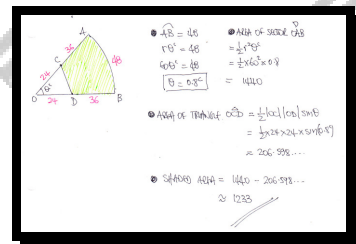 A
36
C
48
24
θᶜ
O 24 D 36 B
• AB = 48
rθᶜ = 48
60θᶜ = 48
θ = 0.8ᶜ
• AREA OF SECTOR OAB
= ½r²θᶜ
= ½×60²×0.8
= 1440
• AREA OF TRIANGLE OCD = ½|OC||OD|sinθ
= ½×24×24×sin(0.8ᶜ)
≈ 206.598....
• SHADED AREA = 1440 - 206.598...
≈ 1233